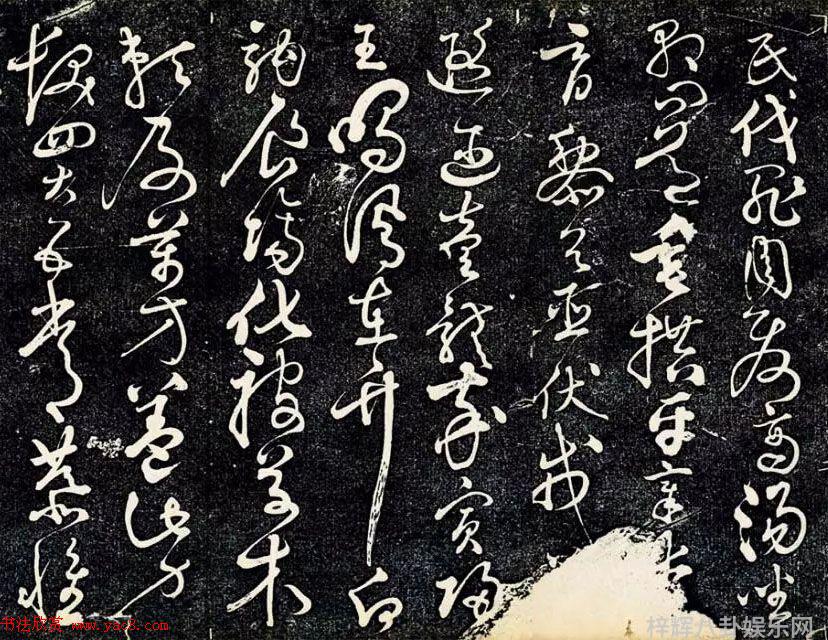 民伐罪周發商湯坐
朝問道垂拱平章愛
育黎首臣伏戎
遐邇壹體率賓歸
王鳴鳳在竹白
駒食場化被草木
賴及萬方蓋此身
髮四大五常恭惟
书法欣赏 www.yac8.com
梓辉八卦娱乐网